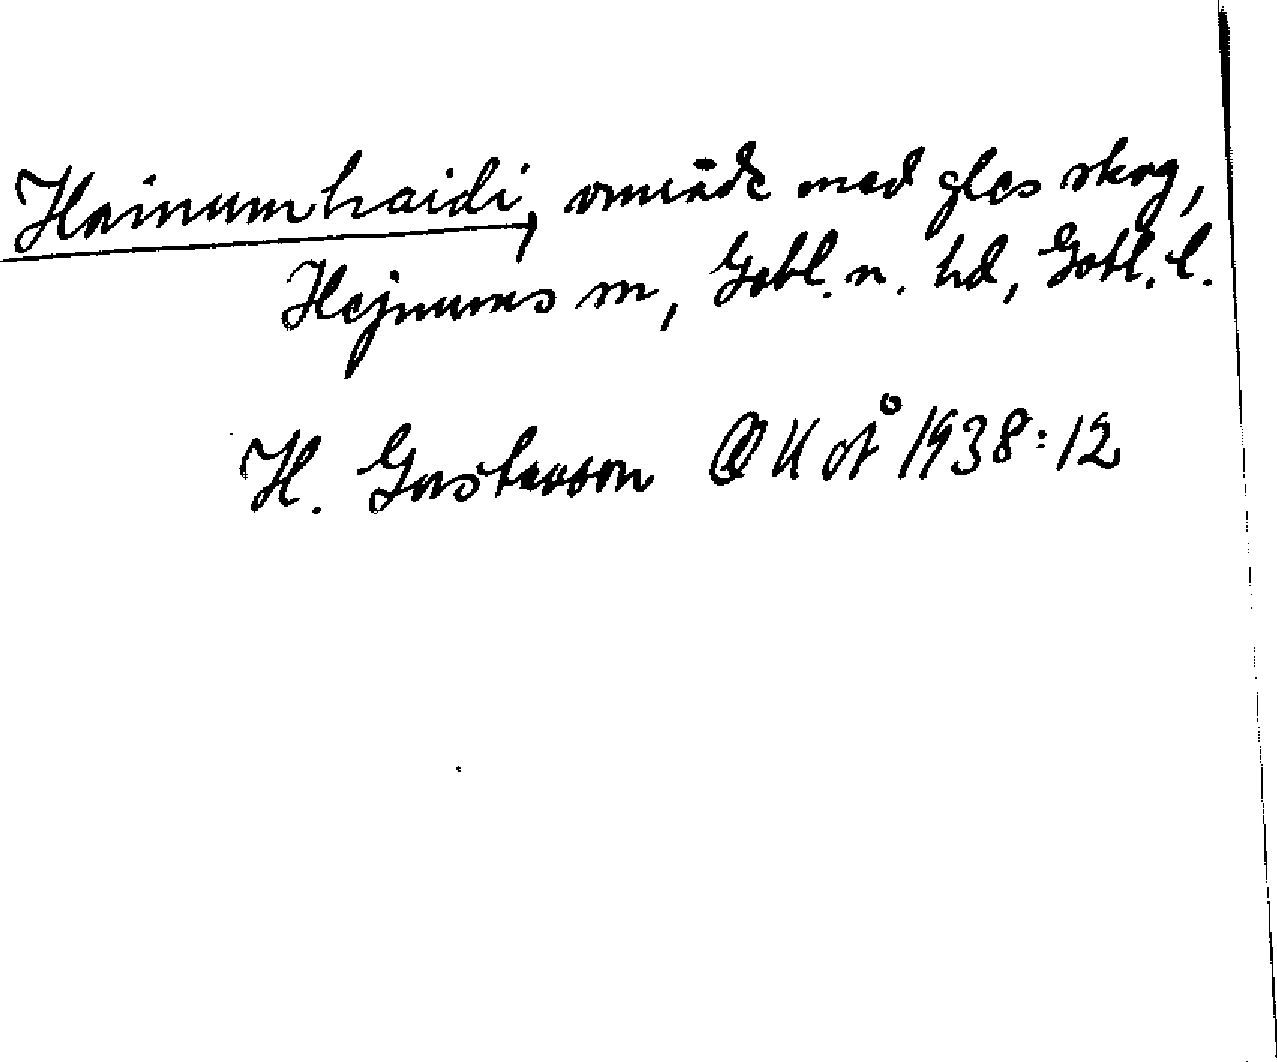 Hainumhaidi, område med gles skog,
Hejnums sn, Gotl. n. hd, Gotl. l.
H. Gustavson OUÅ 1938:12